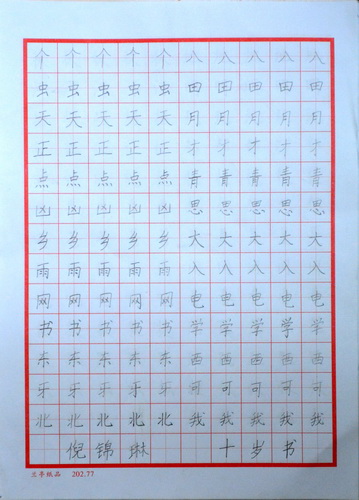 个个个个个八八八八八
虫虫虫虫虫田田田田田
天天天天天月月月月月
正正正正正才才才才才
点点点点点青青青青青
凶凶凶凶凶思思思思思
乡乡乡乡乡大大大大大
雨雨雨雨雨入入入入入
网网网网网电电电电电
书书书书书学学学学学
东东东东东西西西西西
牙牙牙牙牙可可可可可
北北北北北我我我我我
倪锦琳 十岁书
兰亭纸品 202.77